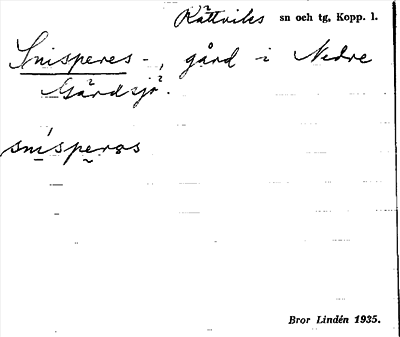 Rättviks sn och tg, Kopp. l.
Snisperes -, gård i Nedre
Gärdsjö.
snispers
Bror Lindén 1935.